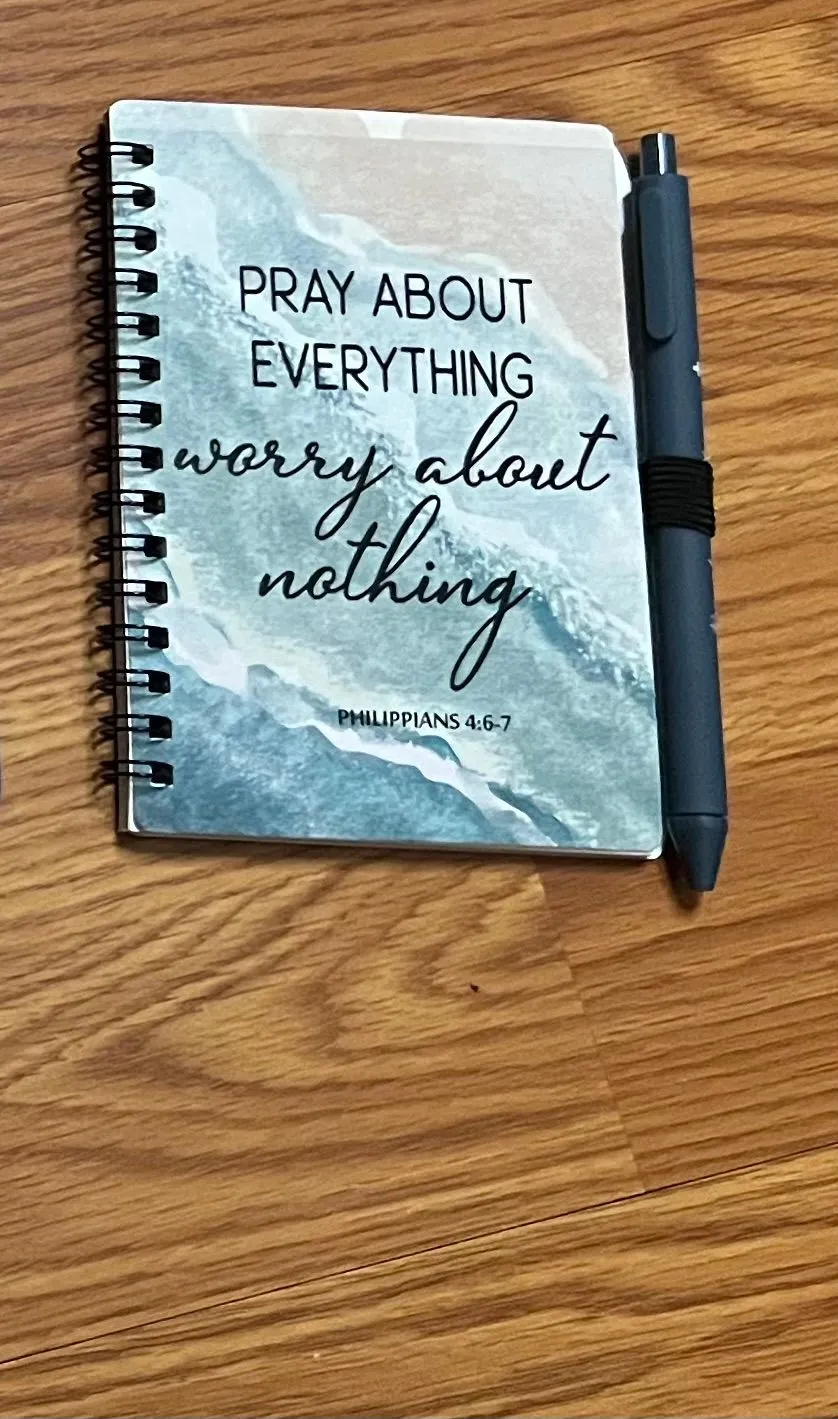 PRAY ABOUT
EVERYTHING
worry about
nothing
PHILIPPIANS 4:6-7